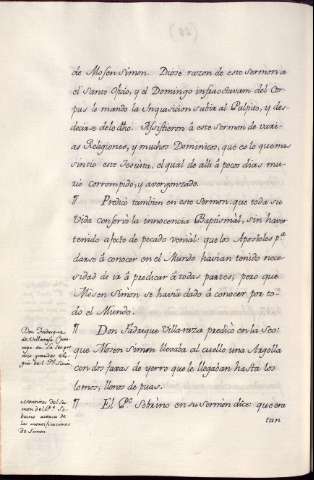 de Mosen Simon. Diose razon de este sermon a
el Santo Oficio, y el Domingo infraoctavam del Cor-
pus le mando la Inquisicion subir al Pulpito, y des-
decirse delo dho. Assistieron à este sermon de varias
Religiones, y muchos Dominicos, que es lo que mas
sintio este Jesuita, el qual de alli à pocos dias mu-
rio corrompido, y avergonzado.
¶ Predicò tambien en este sermon, que toda su
Vida conservò la innocencia Baptismàl, sin haver
tenido afecto de pecado veniàl: que los Apostoles pª
darse à conocer en el Mundo havian tenido nece-
sidad de ir à predicar à todas partes; pero que
Mosen Simon se havia dado à conocer por to-
do el Mundo.
Don Fadrique
de Villarasa
en la Seo
¶ Don Fadrique Villaraza predicò en la Seo:
que Mosen Simon llevaba al cuello una Argolla
con dos faxas de yerro que le llegaban hasta los
lomos, llenos de puas.
del Ser-
mon del Pe. So-
brino acerca de
las mortificaciones
de Simon
¶ El Pe. Sobrino en su sermon dice: que era
tan